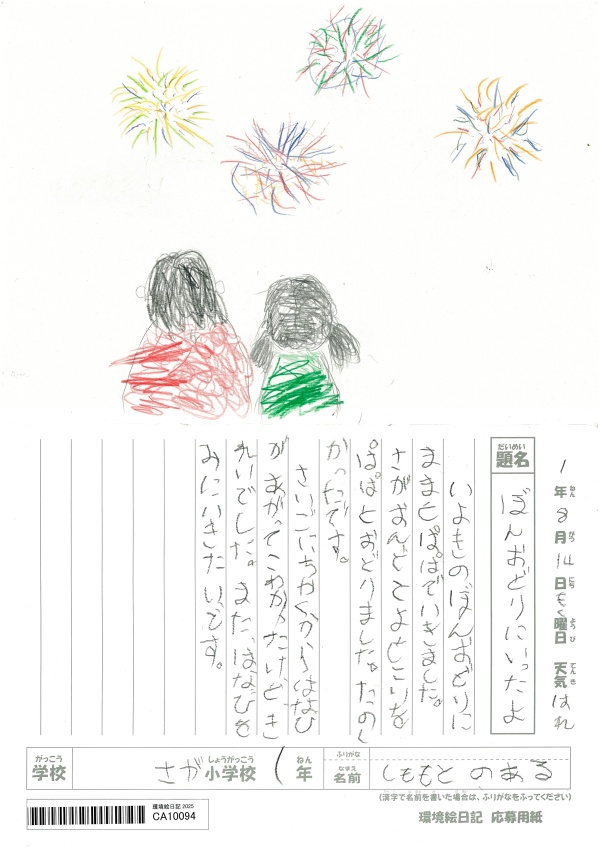 1年8月14日もく曜日 天気はれ
ねん がつ にち ようび てんき
だいめい
題名
ぼんおどりにいったよ
いよきのぼんおどりに
ままとぱぱでいきました。
さがおんどとよとこりを
ぱぱとおどりました。たのし
かったです。
さいごにちかくからはなび
があがってこわかったけど、き
れいでした。またはなびを
みにいきたいです。
がっこう しょうがっこう ねん
学校 さが小学校 1年
ふりがな
なまえ
名前 しももと のある
(漢字で名前を書いた場合は、ふりがなをふってください)
環境絵日記 2025
CA10094
環境絵日記 応募用紙